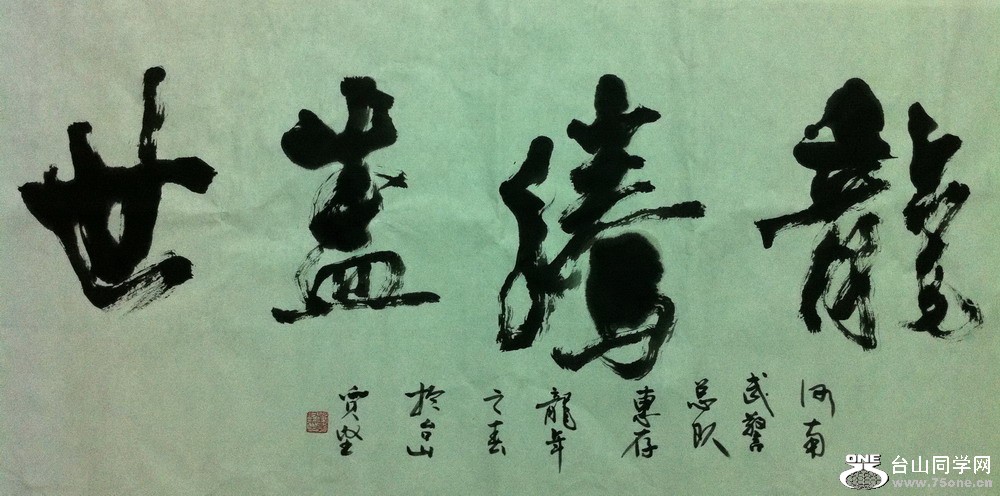 龍騰盖世
河南
武警
总队
惠存
龍年
之春
於台山
贾坚
ONE
台山同学网
www.75one.cn